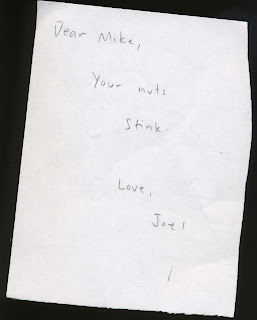 Dear Mike,
Your nuts
Stink.
Love,
Joel